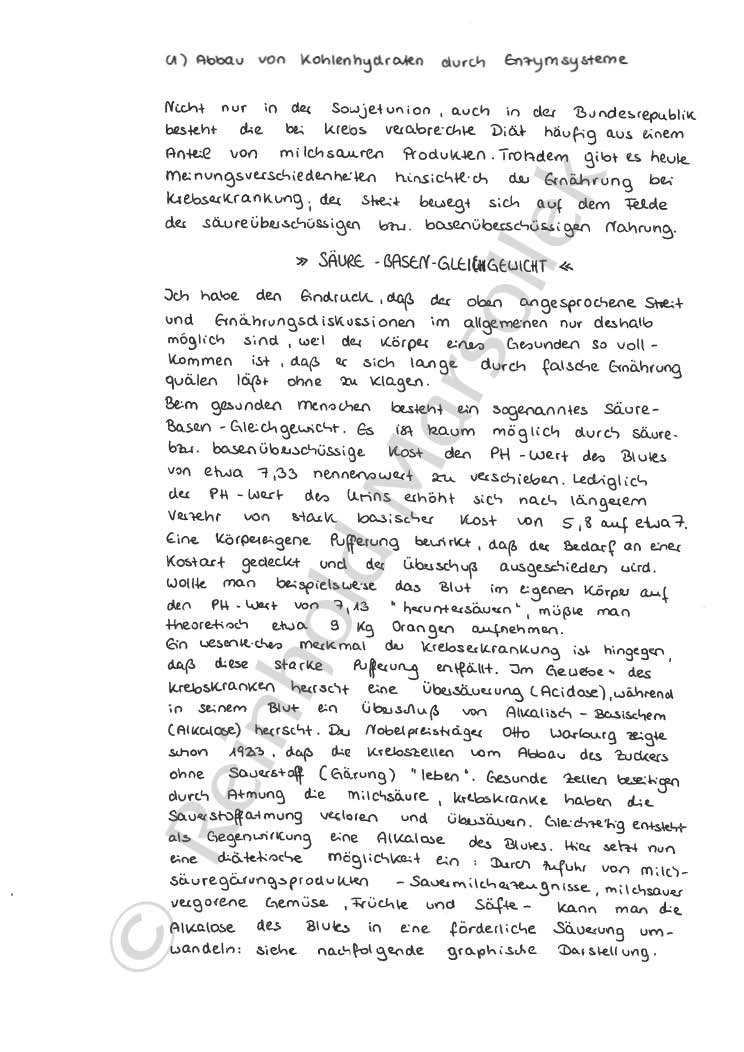 (1) Abbau von Kohlenhydraten durch Enzymsysteme
Nicht nur in der Sowjetunion, auch in der Bundesrepublik
besteht die bei Krebs verabreichte Diät häufig aus einem
Anteil von milchsauren Produkten. Trotzdem gibt es heute
Meinungsverschiedenheiten hinsichtlich der Ernährung bei
Krebserkrankung; der Streit bewegt sich auf dem Felde
der säureüberschüssigen bzw. basenüberschüssigen Nahrung.
» SÄURE - BASEN-GLEICHGEWICHT «
Ich habe den Eindruck, daß der oben angesprochene Streit
und Ernährungsdiskussionen im allgemeinen nur deshalb
möglich sind, weil der Körper eines Gesunden so voll-
kommen ist, daß er sich lange durch falsche Ernährung
quälen läßt ohne zu klagen.
Beim gesunden Menschen besteht ein sogenanntes Säure-
Basen-Gleichgewicht. Es ist kaum möglich durch säure-
bzw. basenüberschüssige Kost den PH-Wert des Blutes
von etwa 7,33 nennenswert zu verschieben. Lediglich
der PH-Wert des Urins erhöht sich nach längerem
Verzehr von stark basischer Kost von 5,8 auf etwa 7.
Eine körpereigene Pufferung bewirkt, daß der Bedarf an einer
Kostart gedeckt und der Überschuß ausgeschieden wird.
Wollte man beispielsweise das Blut im eigenen Körper auf
den PH-Wert von 7,13 "heruntersäuern", müßte man
theoretisch etwa 9 Kg Orangen aufnehmen.
Ein wesentliches Merkmal der Krebserkrankung ist hingegen,
daß diese starke Pufferung entfällt. Im Gewebe des
Krebskranken herrscht eine Übersäuerung (Acidose), während
in seinem Blut ein Überschuß von Alkalisch-Basischem
(Alkalose) herrscht. Der Nobelpreisträger Otto Warburg zeigte
schon 1923, daß die Krebszellen vom Abbau des Zuckers
ohne Sauerstoff (Gärung) "leben". Gesunde Zellen beseitigen
durch Atmung die Milchsäure, krebskranke haben die
Sauerstoffatmung verloren und übersäuern. Gleichzeitig entsteht
als Gegenwirkung eine Alkalose des Blutes. Hier setzt nun
eine diätetische Möglichkeit ein: Durch Zufuhr von milch-
säuregärungsprodukten - Sauermilcherzeugnisse, milchsauer
vergorene Gemüse, Früchte und Säfte - kann man die
Alkalose des Blutes in eine förderliche Säuerung um-
wandeln: siehe nachfolgende graphische Darstellung.
© Reinhold Marsollek